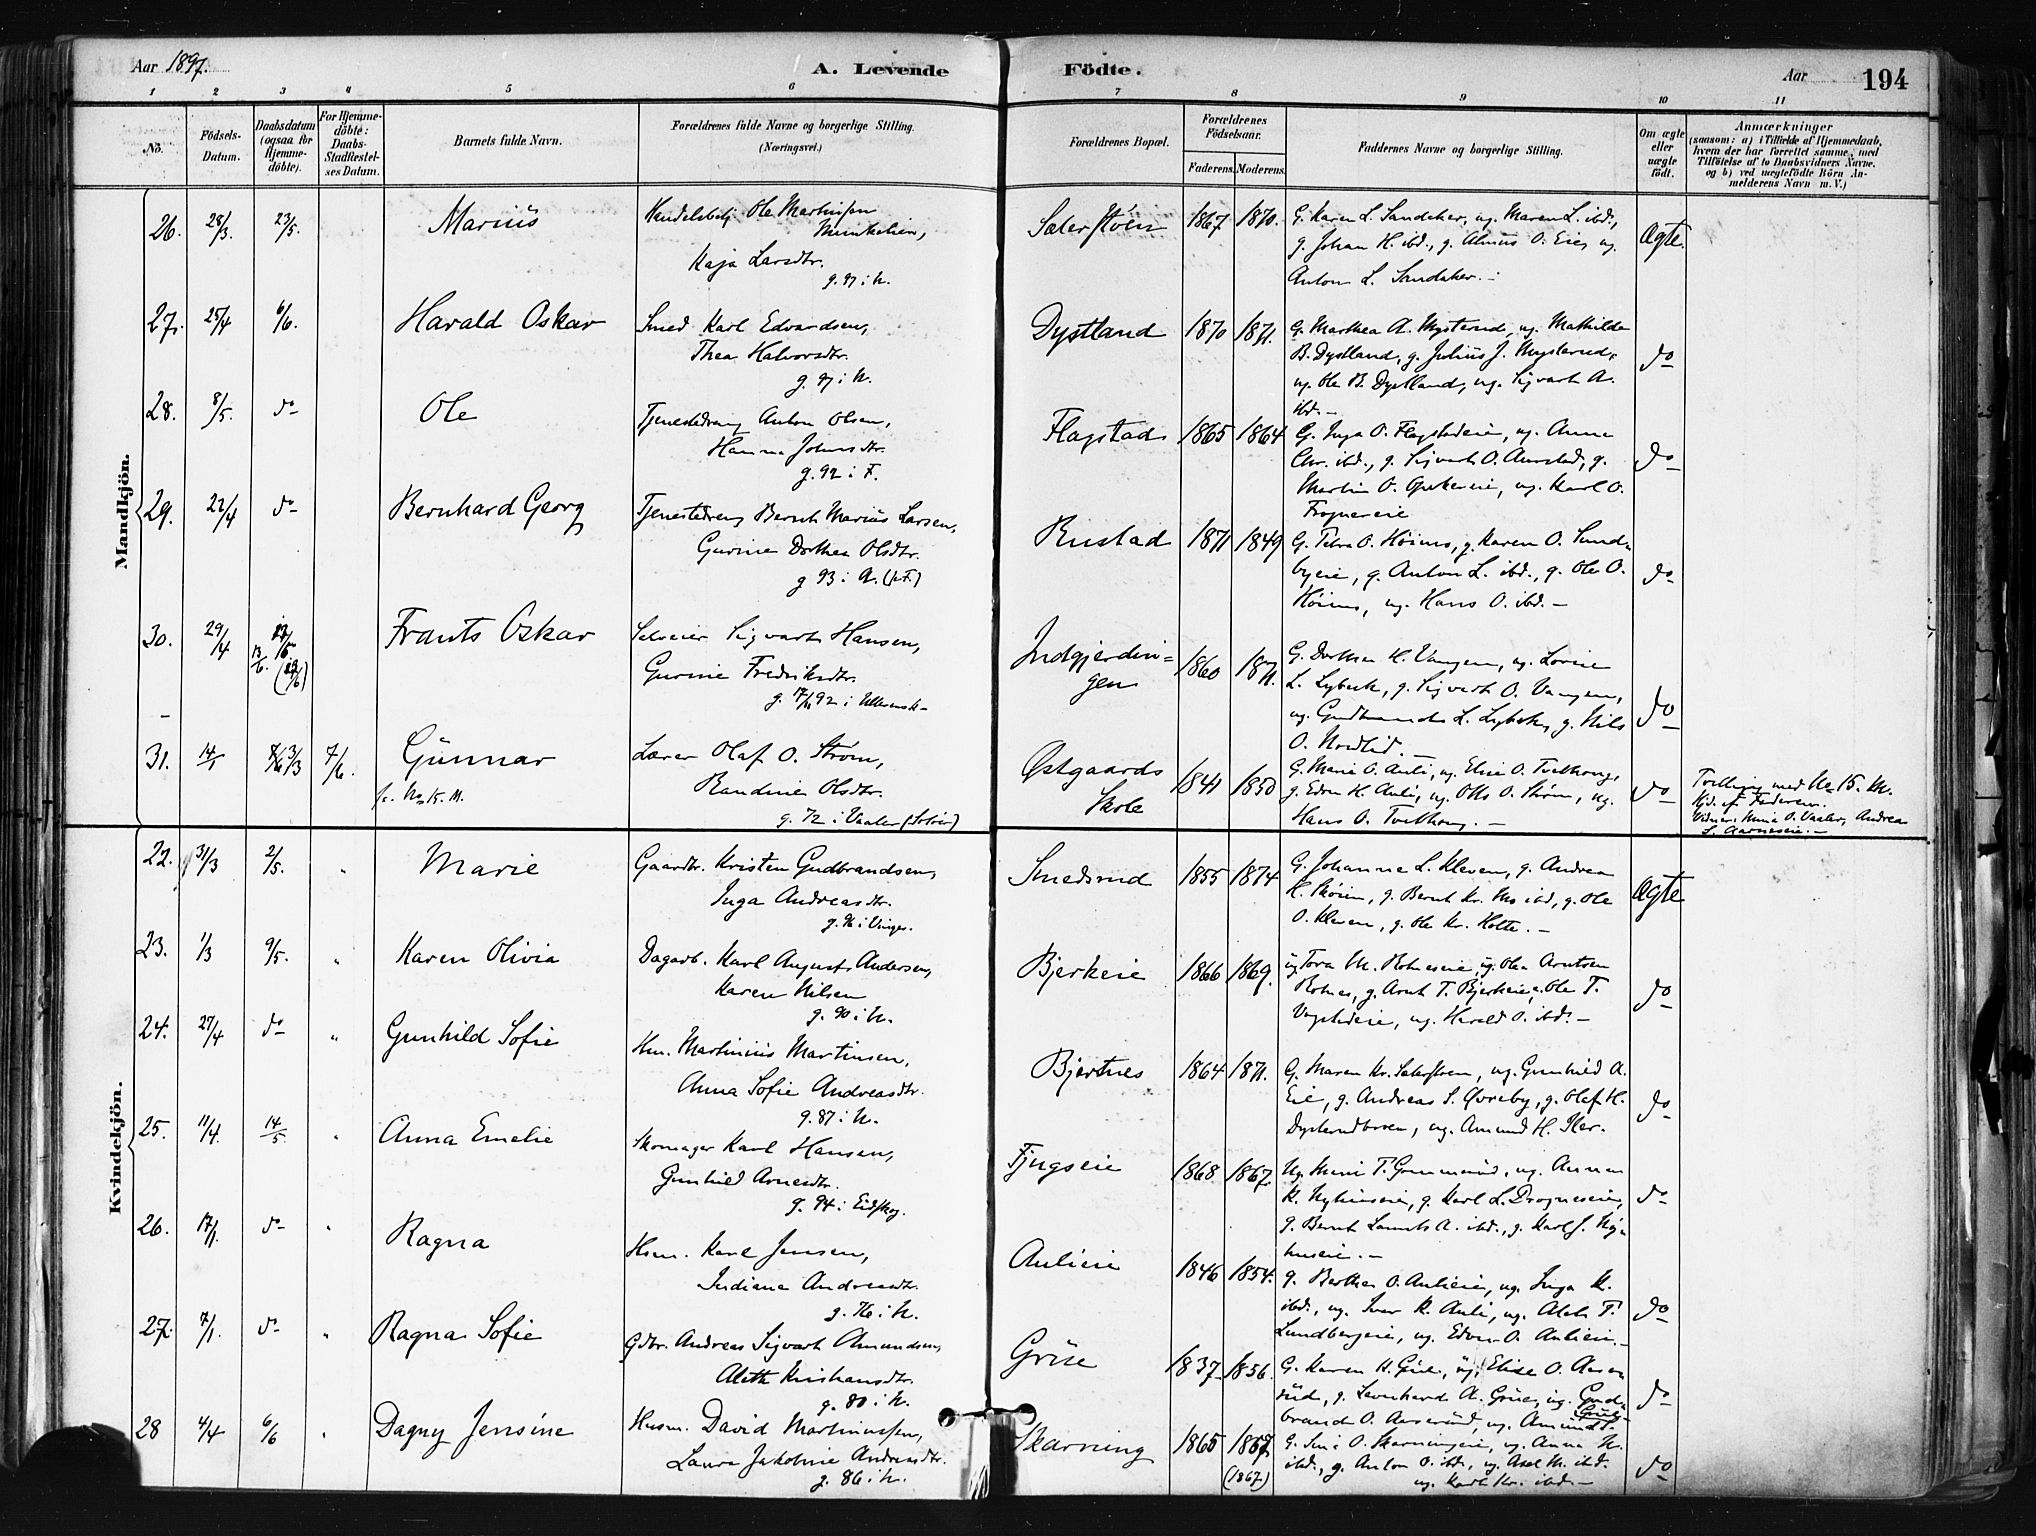 Aar 1897.
A. Levende Födte.
Aar
194
1 2 3 4 5 6 7 8 9 10 11
No.
Födsels-Datum.
Daabsdatum (ogsaa for Hjemmedöbte).
For Hjemmedöbte: Daabs-Stadfestelses Datum.
Barnets fulde Navn.
Forældrenes fulde Navne og borgerlige Stilling.
(Næringsvei.)
Forældrenes Bopæl.
Forældrenes Födselsaar.
Faderens. Moderens.
Faddernes Navne og borgerlige Stilling.
Om ægte eller uægte födt.
Anmærkninger
(saasom: a) i Tilfælde af Hjemmedaab, hvem der har forrettet samme, med Tilföielse af to Daabsvidners Navne, og b) ved uægtefödte Börn Anmelderens Navn m. V.)
Mandkjön.
26. 28/3 23/5. Marius
Handelsbetj. Ole Martinsen
Munkelien,
Kaja Larsdtr.
g. 97 i N.
Sæterstöen 1867 1870.
G. Karen L. Sandaker, ug. Maren L. ibd.,
g. Johan H. ibd., g. Almus O. Eie, ug.
Anton L. Sandaker. -
Ægte.
27. 25/4 6/6. Harald Oskar
Smed Karl Edvardsen,
Thea Halvorsdtr.
g. 97 i N.
Dystland 1870 1871.
G. Marthea A. Mysterud, ug. Mathilde
B. Dystland, g. Julius J. Mysterud,
ug. Ole B. Dystland, ug. Sigvart A.
ibd. -
do
28. 8/5. do Ole
Tjenestedreng Anton Olsen,
Hanna Johnsdtr.
g. 92 i F.
Flagstad 1865 1864
G. Inga O. Flagstadeie, ug. Anna
Chr. ibd., g. Sigvart O. Aurstad, g.
Martin O. Opakereie, ug. Karl O.
Fropnereie
do
29. 22/4 do Bernhard Georg
Tjenestedreng Bernt Marius Larsen,
Gurine Dorthea Olsdtr.
g 93 i A. (p.F.)
Rustad 1871 1849
G. Petra O. Höines, g. Karen O. Sund-
byeie, g. Anton L. ibd., g. Ole O.
Höines, ug. Hans O. ibd. -
do
30. 29/4 13/6. Frants Oskar
Selveier Sigvart Hansen,
Gurine Fredriksdtr.
g. 92 i Ullensak-
Indgjerdin-
gen 1860 1871.
G. Dorthea H. Vangen, ug. Lovise
L. Lybeck, g. Sigvart O. Vangen,
ug. Gudbrand L. Lybek, g. Nils
O. Nordlid. -
do
31. 14/1 3/3 7/6. Gunnar
Lærer Olaf O. Ström,
Randine Olsdtr.
g. 72 i Vaaler (Solör)
Østgaards
Skole 1841 1850
G. Marie O. Auli, ug. Elise O. Tvethoug,
g. Edvin H. Auli, ug. Otto O. Ström, ug.
Hans O. Tvethoug. -
do
Tvilling med No 15. M.
Hjd. af Faderen.
Vidner Anne O. Vaaler, Andrea
L Aarneseie. -
Kvindekjön.
22. 31/3 2/5. Marie
Gaardbr. Kristen Gudbrandsen,
Inga Andreasdtr.
g. 96 i Vinger.
Smedsrud 1855 1874
G. Johanne L. Kleven, g. Andrea
H. Sköien, g. Bernt Kr. Mo ibd, g. Ole
O. Kleven, g. Ole Kr. Holte. -
Ægte
23. 1/3 9/5. Karen Olivia
Dagarb. Karl August Andersen,
Karen Nilsen
g. 90 i N.
Bjerkeie 1866 1869.
ug Tora M. Holneseie, ug. Olea Arntsen
Holnes, g. Arnt T. Bjerkeie, Ole T.
Vagstadeie, ug. Harald O. ibd. -
do
24. 27/4 do Gunhild Sofie
Hm. Martinius Martinsen,
Anna Sofie Andreasdtr.
g. 87 i N.
Bjertnes 1864 1871.
G. Maren Kr. Sæterstöen, ug. Gunhild A.
Eie, g. Andreas S. Øvreby, g. Olaf H.
Dysterudbraaten, ug. Amund H. Iler.
do
25. 11/4. 14/5 Anna Emelie
Skomager Karl Hansen,
Gunhild Arnesdtr.
g. 94 i Eidskog.
Fjugseie 1868 1867.
ug. Anne T. Grimmerud, ug. Annea
K. Nyhuseie, g. Karl L. Drogneseie,
g. Bernt Laurits A. ibd., g. Karl J. Ny-
huseie. -
do
26. 17/1. do Ragna
Hsm. Karl Jensen,
Indiana Andreasdtr.
g. 76 i N.
Aulieie 1846 1854.
g. Berthea O. Aulieie, ug. Inga K.
ibd., ug. Ivar K. Auli, ug. Aleth T.
Lundbergeie, ug. Edvin O. Aulieie. -
do
27. 7/1. do Ragna Sofie
Gdbr. Andreas Sigvart Amundsen,
Aleth Kristiansdtr.
g. 80 i N.
Grüe 1837 1856.
G. Karen H. Grüe, ug. Elise O. Aase-
rud, g. Leonhard A. Grüe, ug. Gud-
brand O. Aaserud, ug. Amund
Grüe
do
28 4/4 6/6 Dagny Jensine
Husm. David Martinussen,
Laura Jakobine Andreasdtr.
g. 86 i N.
Skarning 1865 1867
(1867)
G. Sina O. Skarningeie, ug. Anna N.
ibd., g. Anton O. ibd., ug. Axel M. ibd.
ug. Karl Kr. ibd. -
do